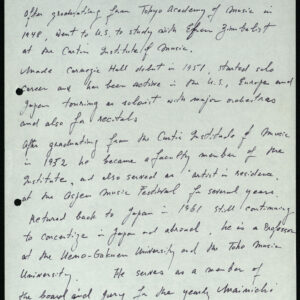 After graduating from Tokyo Academy of Music in
1948, went to U.S. to study with Efrem Zimbalist
at the Curtis Institute of Music.
Made Carnegie Hall debut in 1951, started solo
career and has been active in the U.S., Europe and
Japan touring as soloist with major orchestras
and also for recitals
After graduating from the Curtis Institute of Music
in 1952 he became a faculty member of the
Institute, and also served as artist in residence,
at the Aspen Music Festival for several years.
Returned back to Japan in 1961 still continuing
to concertize in Japan and abroad, he is a Professor
at the Ueno-Gakuen University and the Toho Music
University. He serves as a member of
the board and jury for the yearly Mainichi